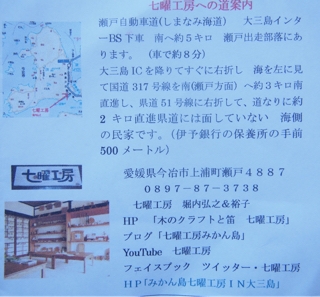 七曜工房への道案内
瀬戸自動車道(しまなみ海道) 大三島インタ
ーBS下車 南へ約5キロ 瀬戸出走部落にあ
ります。 (車で約8分)
大三島ICを降りてすぐに右折し 海を左に見
て国道317号線を南(瀬戸方面) へ約3キロ南
直進し、県道51号線に右折して、道なりに約
2キロ直進県道には面していない 海側
の民家です。(伊予銀行の保養所の手前
500メートル)
七曜工房
愛媛県今治市上浦町瀬戸4887
0897-87-3738
七曜工房 堀内弘之&裕子
HP 「木のクラフトと笛 七曜工房」
ブログ「七曜工房みかん島」
YouTube 七曜工房
フェイスブック ツイッター・七曜工房
HP「みかん島七曜工房IN大三島」